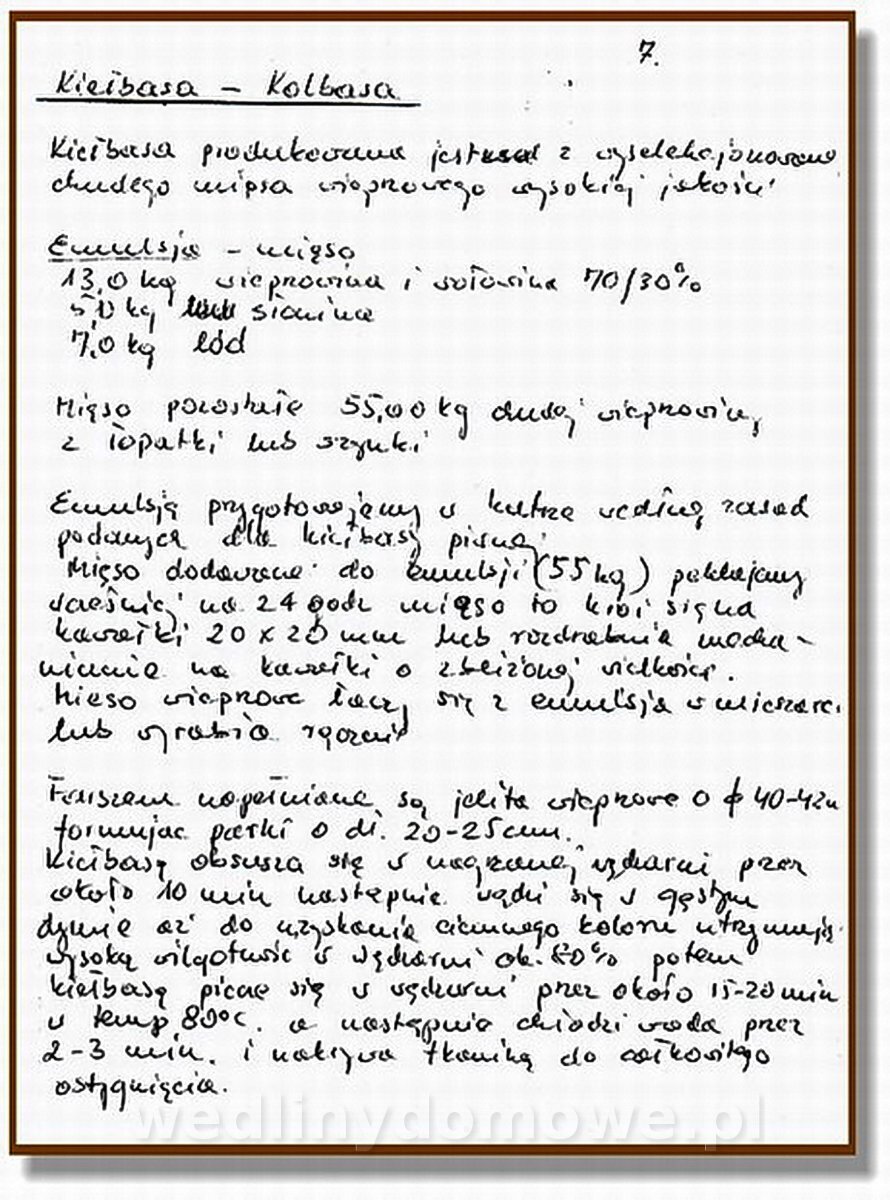 7.
Kiełbasa – Kolbasa
Kiełbasa produkowana jest z wyselekcjonowane
chudego mięsa wieprzowego wysokiej jakości
Emulsja – mięso
13,0 kg wieprzowina i wołowina 70/30%
5,0 kg słonina
7,0 kg lód
Mięso pozostałe 55,00 kg chudej wieprzowiny
z łopatki lub szynki
Emulsję przygotowujemy w kutrze według zasad
podanych dla kiełbasy
Mięso dodawane do emulsji (55 kg) peklujemy
wcześniej na 24 godz mięso to kroi się na
kawałki 20 x 20 mm lub rozdrabnia mecha-
nicznie na kawałki o zbliżonej wielkości.
Mięso wieprzowe łączy się z emulsją w mieszarce
lub wyrabia ręcznie
Farszem napełniane są jelita wieprzowe o ϕ 40-42
formując parki o dł. 20-25cm.
Kiełbasę obsusza się w nagrzanej wędzarni przez
około 10 min następnie wędzi się w gęstym
dymie aż do uzyskania ciemnego koloru utrzymując
wysoką wilgotność w wędzarni ok. % potem
kiełbasę piecze się w wędzarni przez około 15-20 min
w temp 80°C. a następnie chłodzi woda przez
2-3 min. i nakrywa tkaniną do całkowitego
ostygnięcia.
wedlinydomowe.pl